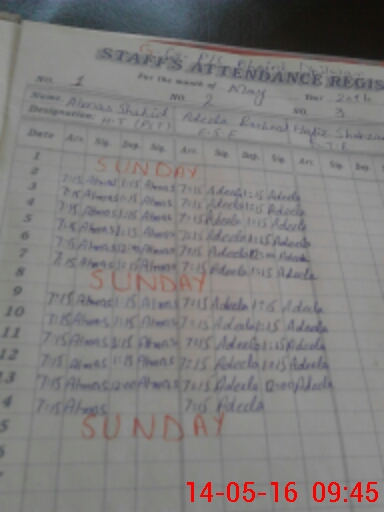 STAFF'S ATTENDANCE REGIS
NO. 1 For the month of May Year 2016
Name Almas Shahid NO. 2 NO. 3
Designation: H.T Adeela Rasheed Hafiz
E.S.E
Date Arr. Sig. Dep. Sig. Arr. Sig. Dep. Sig. Arr. Sig. Dep.
1 SUNDAY
2 7:15 Almas 1:15 Almas 7:15 Adeela 1:15 Adeela
3 7:15 Almas 1:15 Almas 7:15 Adeela 1:15 Adeela
4 7:15 Almas 1:15 Almas 7:15 Adeela 1:15 Adeela
5 7:15 Almas 1:15 Almas 7:15 Adeela 1:15 Adeela
6 7:15 Almas 12:00 Almas 7:15 Adeela 12:00 Adeela
7 7:15 Almas 1:15 Almas 7:15 Adeela 1:15 Adeela
8 SUNDAY
9 7:15 Almas 1:15 Almas 7:15 Adeela 1:15 Adeela
10 7:15 Almas 1:15 Almas 7:15 Adeela 1:15 Adeela
11 7:15 Almas 1:15 Almas 7:15 Adeela 1:15 Adeela
12 7:15 Almas 1:15 Almas 7:15 Adeela 1:15 Adeela
13 7:15 Almas 12:00 Almas 7:15 Adeela 12:00 Adeela
4 7:15 Almas 7:15 Adeela
5 SUNDAY
14-05-16 09:45